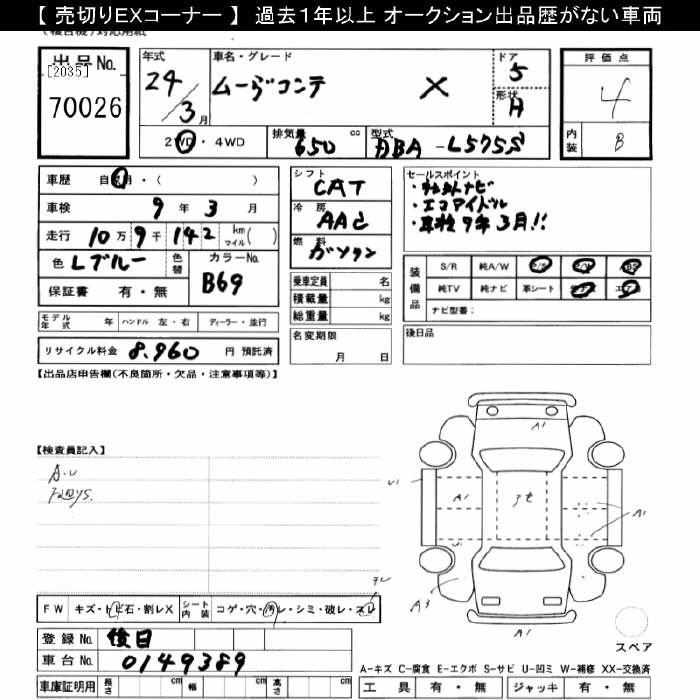 【 売切りEXコーナー 】 過去１年以上 オークション出品歴がない車両
出品No.
[2035]
70026
年式
24/3月
車名・グレード
ムーヴコンテ X
ドア
5
形状
H
評価点
4
内装
B
2WD・4WD
排気量
650 cc
型式
DBA-L575S
車歴 自家用・( )
車検 9年3月
走行 10万9千142 km マイル( )
色 Lブルー
色替
カラーNo.
B69
保証書 有・無
モデル年式 年 ハンドル 左・右 ディーラー・並行
リサイクル料金 8,960 円 預託済
シフト
CAT
冷房
AAC
燃料
ガソリン
乗車定員 名
積載量 kg
総重量 kg
名変期限
月 日
セールスポイント
・社外ナビ
・エコアイドル
・車検9年3月!!
装備品
S/R 純A/W P/S P/W
純TV 純ナビ 革シート
ナビ型番：
後日品
【出品店申告欄(不良箇所・欠品・注意事項等)】
【検査員記入】
A.U
FW キズ・トビ石・割レX
シート内装 コゲ・穴・汚レ・シミ・破レ・スレ
登録No. 後日
車台No. 0149389
車庫証明用 長さ cm 幅 cm 高さ cm
A1
U1
A1
A1
A3
A1
スペア
A-キズ C-腐食 E-エクボ S-サビ U-凹ミ W-補修 XX-交換済
工具 有・無 ジャッキ 有・無